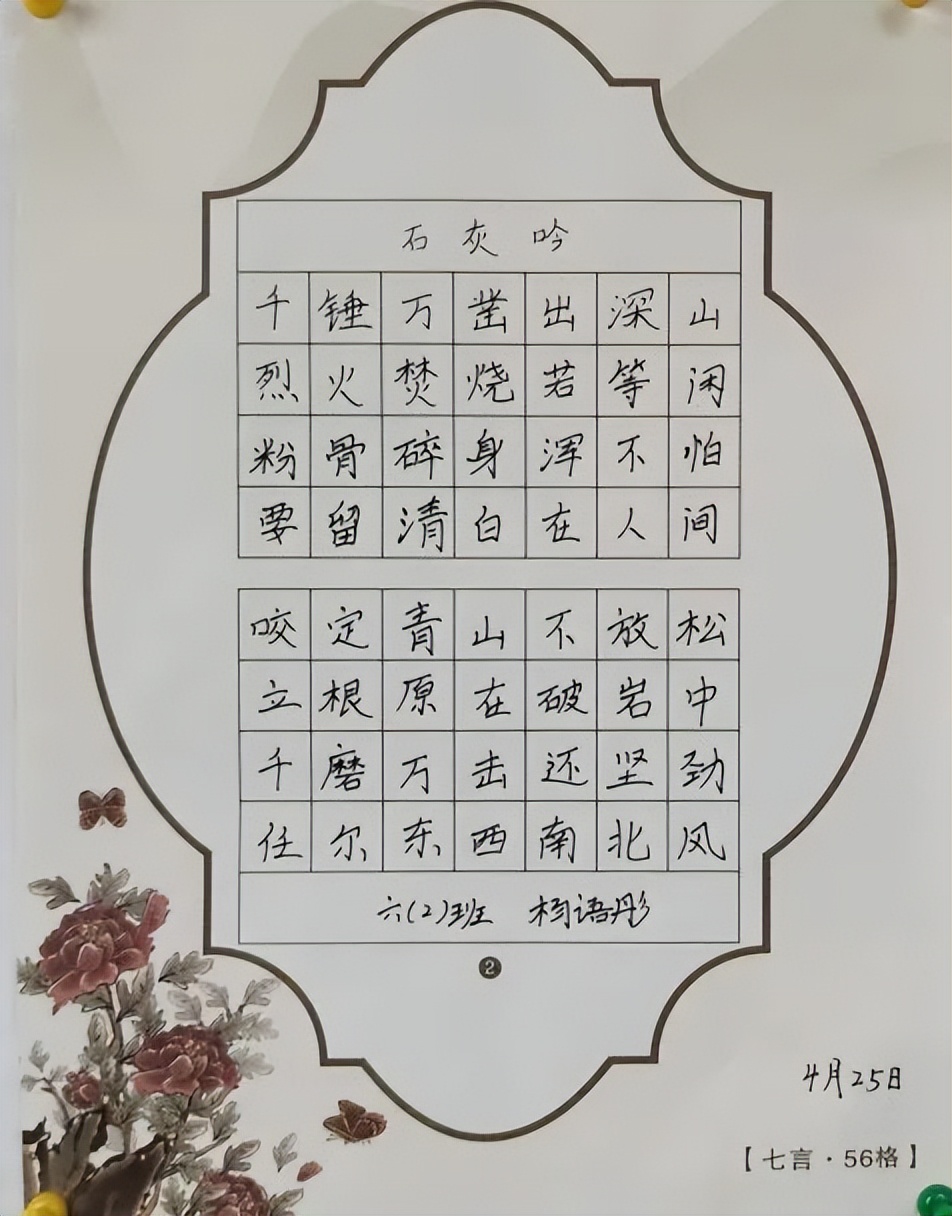 石灰吟
千锤万凿出深山
烈火焚烧若等闲
粉骨碎身浑不怕
要留清白在人间
咬定青山不放松
立根原在破岩中
千磨万击还坚劲
任尔东西南北风
六(2)班 杨语彤
2
4月25日
【七言·56格】